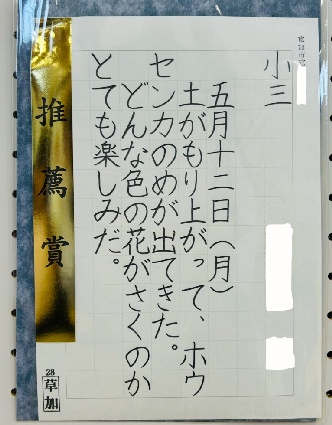 小三
五月十二日(月)
土がもり上がって、ホウ
センカのめが出てきた。
どんな色の花がさくのか
とても楽しみだ。
推薦賞
28
草加